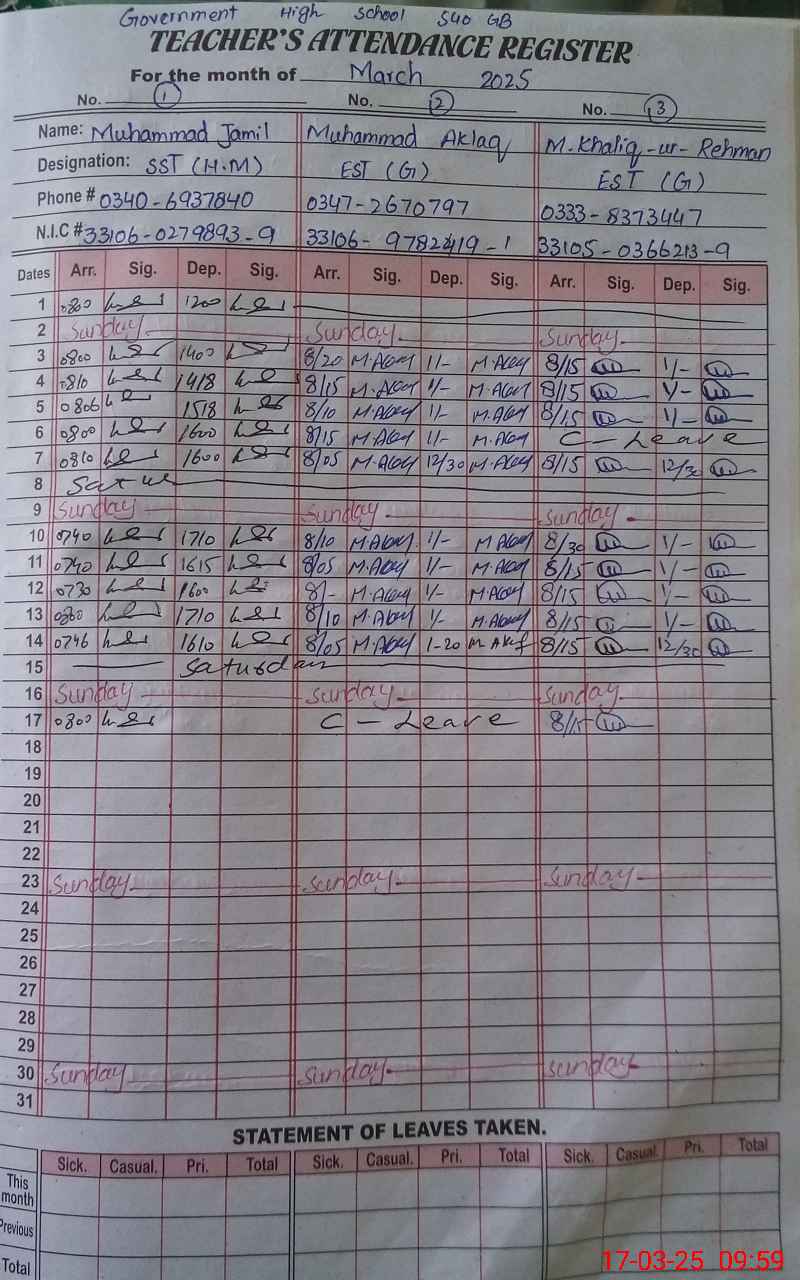 Government High School 540 GB
TEACHER'S ATTENDANCE REGISTER
For the month of March 2025
No. 1 No. 2 No. 3
Name: Muhammad Jamil Muhammad Aklaq M. Khaliq-ur-Rehman
Designation: SST (H.M) EST (G) EST (G)
Phone # 0340-6937840 0347-2670797 0333-8373447
N.I.C # 33106-0279893-9 33106-9782419-1 33105-0366213-9
Dates Arr. Sig. Dep. Sig. Arr. Sig. Dep. Sig. Arr. Sig. Dep. Sig.
1 0800 1200
2 Sunday Sunday. Sunday.
3 0800 1400 8/20 1/- 8/15 1/-
4 0810 1418 8/15 1/- 8/15 1/-
5 0806 1518 8/10 1/- 8/15 1/-
6 0800 1600 8/15 1/- C - Leave
7 0810 1600 8/05 12/30 8/15 12/30
8
9 Sunday Sunday. Sunday.
10 0740 1710 8/10 1/- 8/30 1/-
11 0740 1615 8/05 1/- 8/15 1/-
12 0730 1600 8/- 1/- 8/15 1/-
13 1710 8/10 1/- 8/15 1/-
14 0746 1610 8/05 1-20 8/15 12/30
15 Saturday
16 Sunday Sunday. Sunday.
17 0800 C - Leave 8/15
18
19
20
21
22
23 Sunday. Sunday. Sunday.
24
25
26
27
28
29
30 Sunday Sunday. Sunday.
31
STATEMENT OF LEAVES TAKEN.
Sick. Casual. Pri. Total Sick. Casual. Pri. Total Sick. Casual. Pri. Total
This month
Previous
Total
17-03-25 09:59